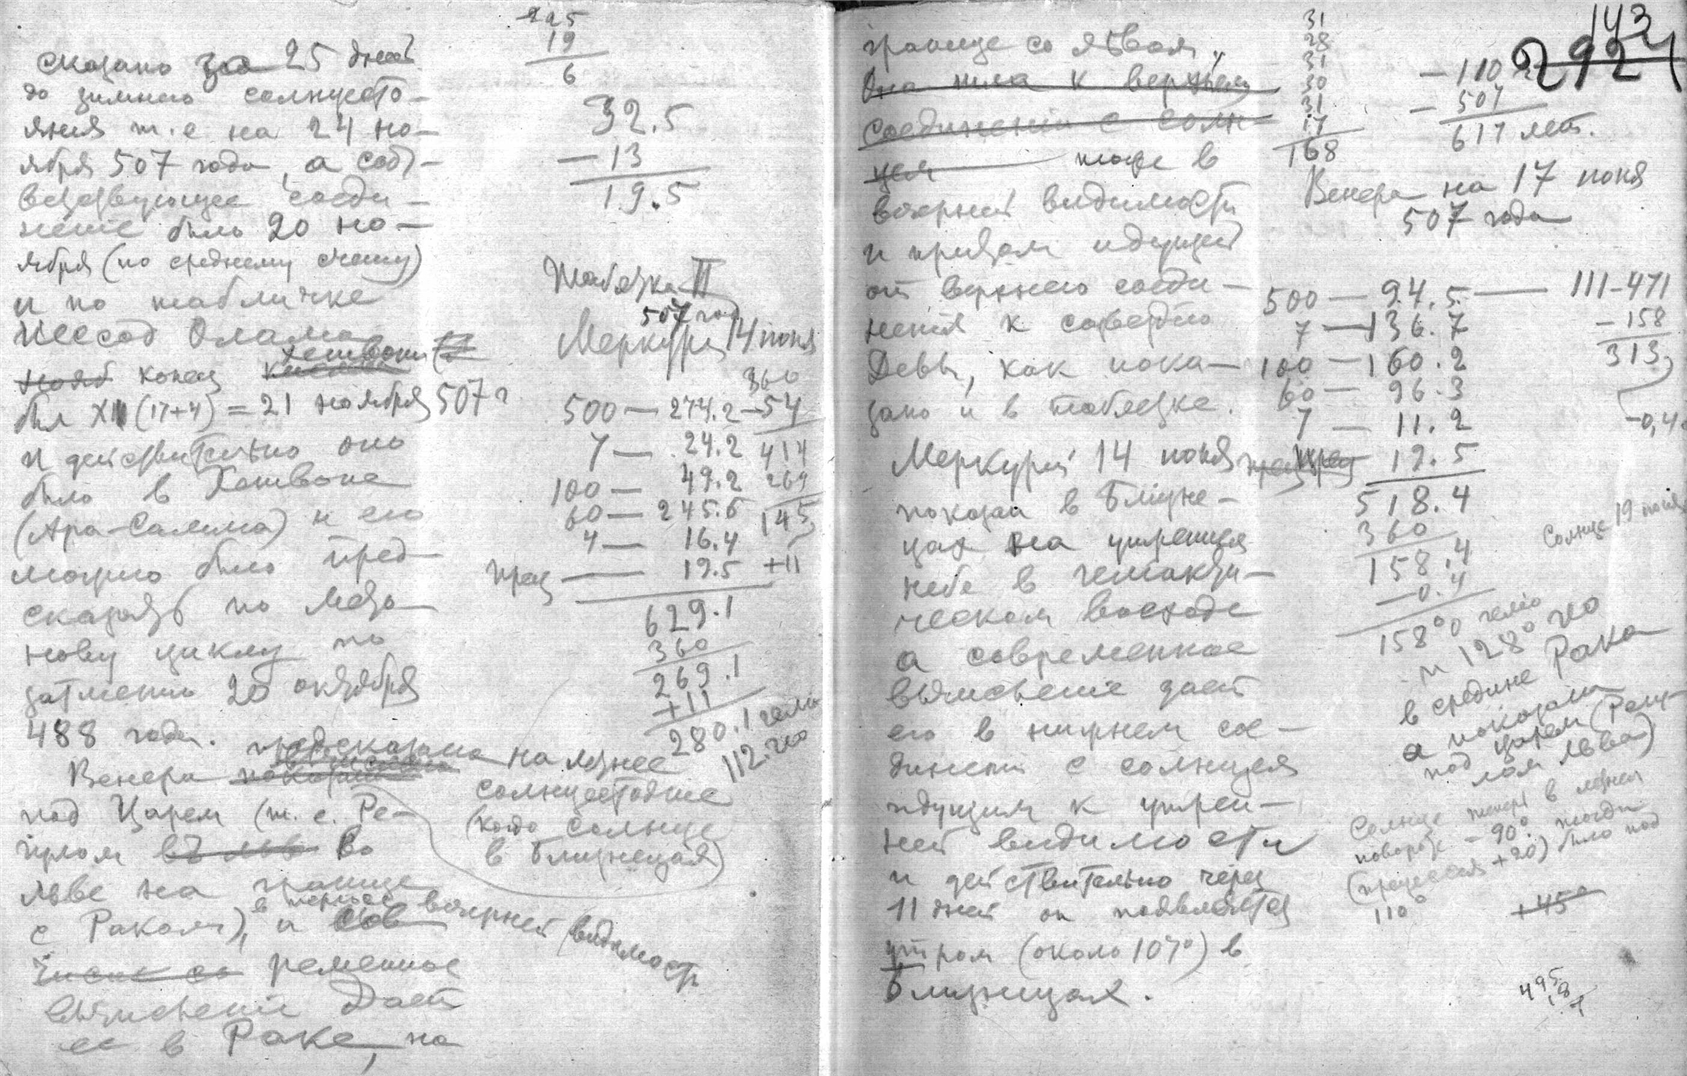 сказано за 25 дней
до зимнего солнцесто-
яния т.е на 24 но-
ября 507 года, а соот-
ветствующее соеди-
нение было 20 но-
ября (по среднему счету)
и по табличке
конец
был XII (17+4) = 21 ноября 507 г
и действительно оно
было в Хешване
и его
можно было пред-
сказать по Мето-
нову циклу по
затмению 20 октября
488 года.
Венера предсказана
под Царем (т. е. Ре-
гулом во
Льве на границе
с Раком), а в первой вечерней видимости
ременное
вычисление дает
ее в Раке, на
225
19
6
32.5
— 13
19.5
Таблязка II
507 год
Меркурий 14 июня
360
500 — 274.2 — 54
7 — 24.2 414
100 — 49.2 269
60 — 245.6 145
4 — 16.4
прец — 19.5 +11
629.1
360
269.1
+11
280.1 гелио
112. гео
на летнее
солнцестояние
(когда солнце
в Близнецах)
143
2921
границе со Львом,
Она шла к верхнему
соединению с солн-
цем тоже в
вечерней видимости
и притом идущей
от верхнего соеди-
нения к созвездию
Девы, как пока-
зано и в таблязке.
Меркурий 14 июня
показан в Близне-
цах на утреннем
небе в гелиакти-
ческом восходе
а современное
вычисление дает
его в нижнем сое-
динении с солнцем
идущим к утрен-
ней видимости
и действительно через
11 дней он появляется
утром (около 107°) в
Близнецах.
31
28
31
30
31
17
168
— 110
— 507
617 лет.
Венера на 17 июня
507 года
500 — 94.5 — 111-471
7 — 136.7 — 158
100 — 160.2 313
60 — 96.3
7 — 11.2 —0,4
прец 19.5
518.4
360
158.4
—0.4
158°0 гелио
и 128° гео
в средине Рака
а показана
под царем (Регу-
лом Льва)
Солнце 19 июня
Солнце теперь в летнем
повороте — 90° тогда
(прецессия +20) было под
110°
+45°
495